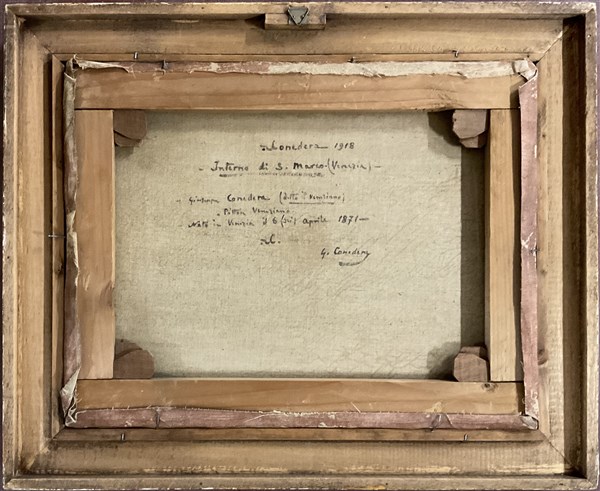 Conedera 1918
- Interno di S. Marco (Venezia) -
- Giuseppe Conedera (detto il Veneziano)
- Pittore Veneziano
- Nato in Venezia il 6 (sei) Aprile 1871 -
C.
G. Conedera